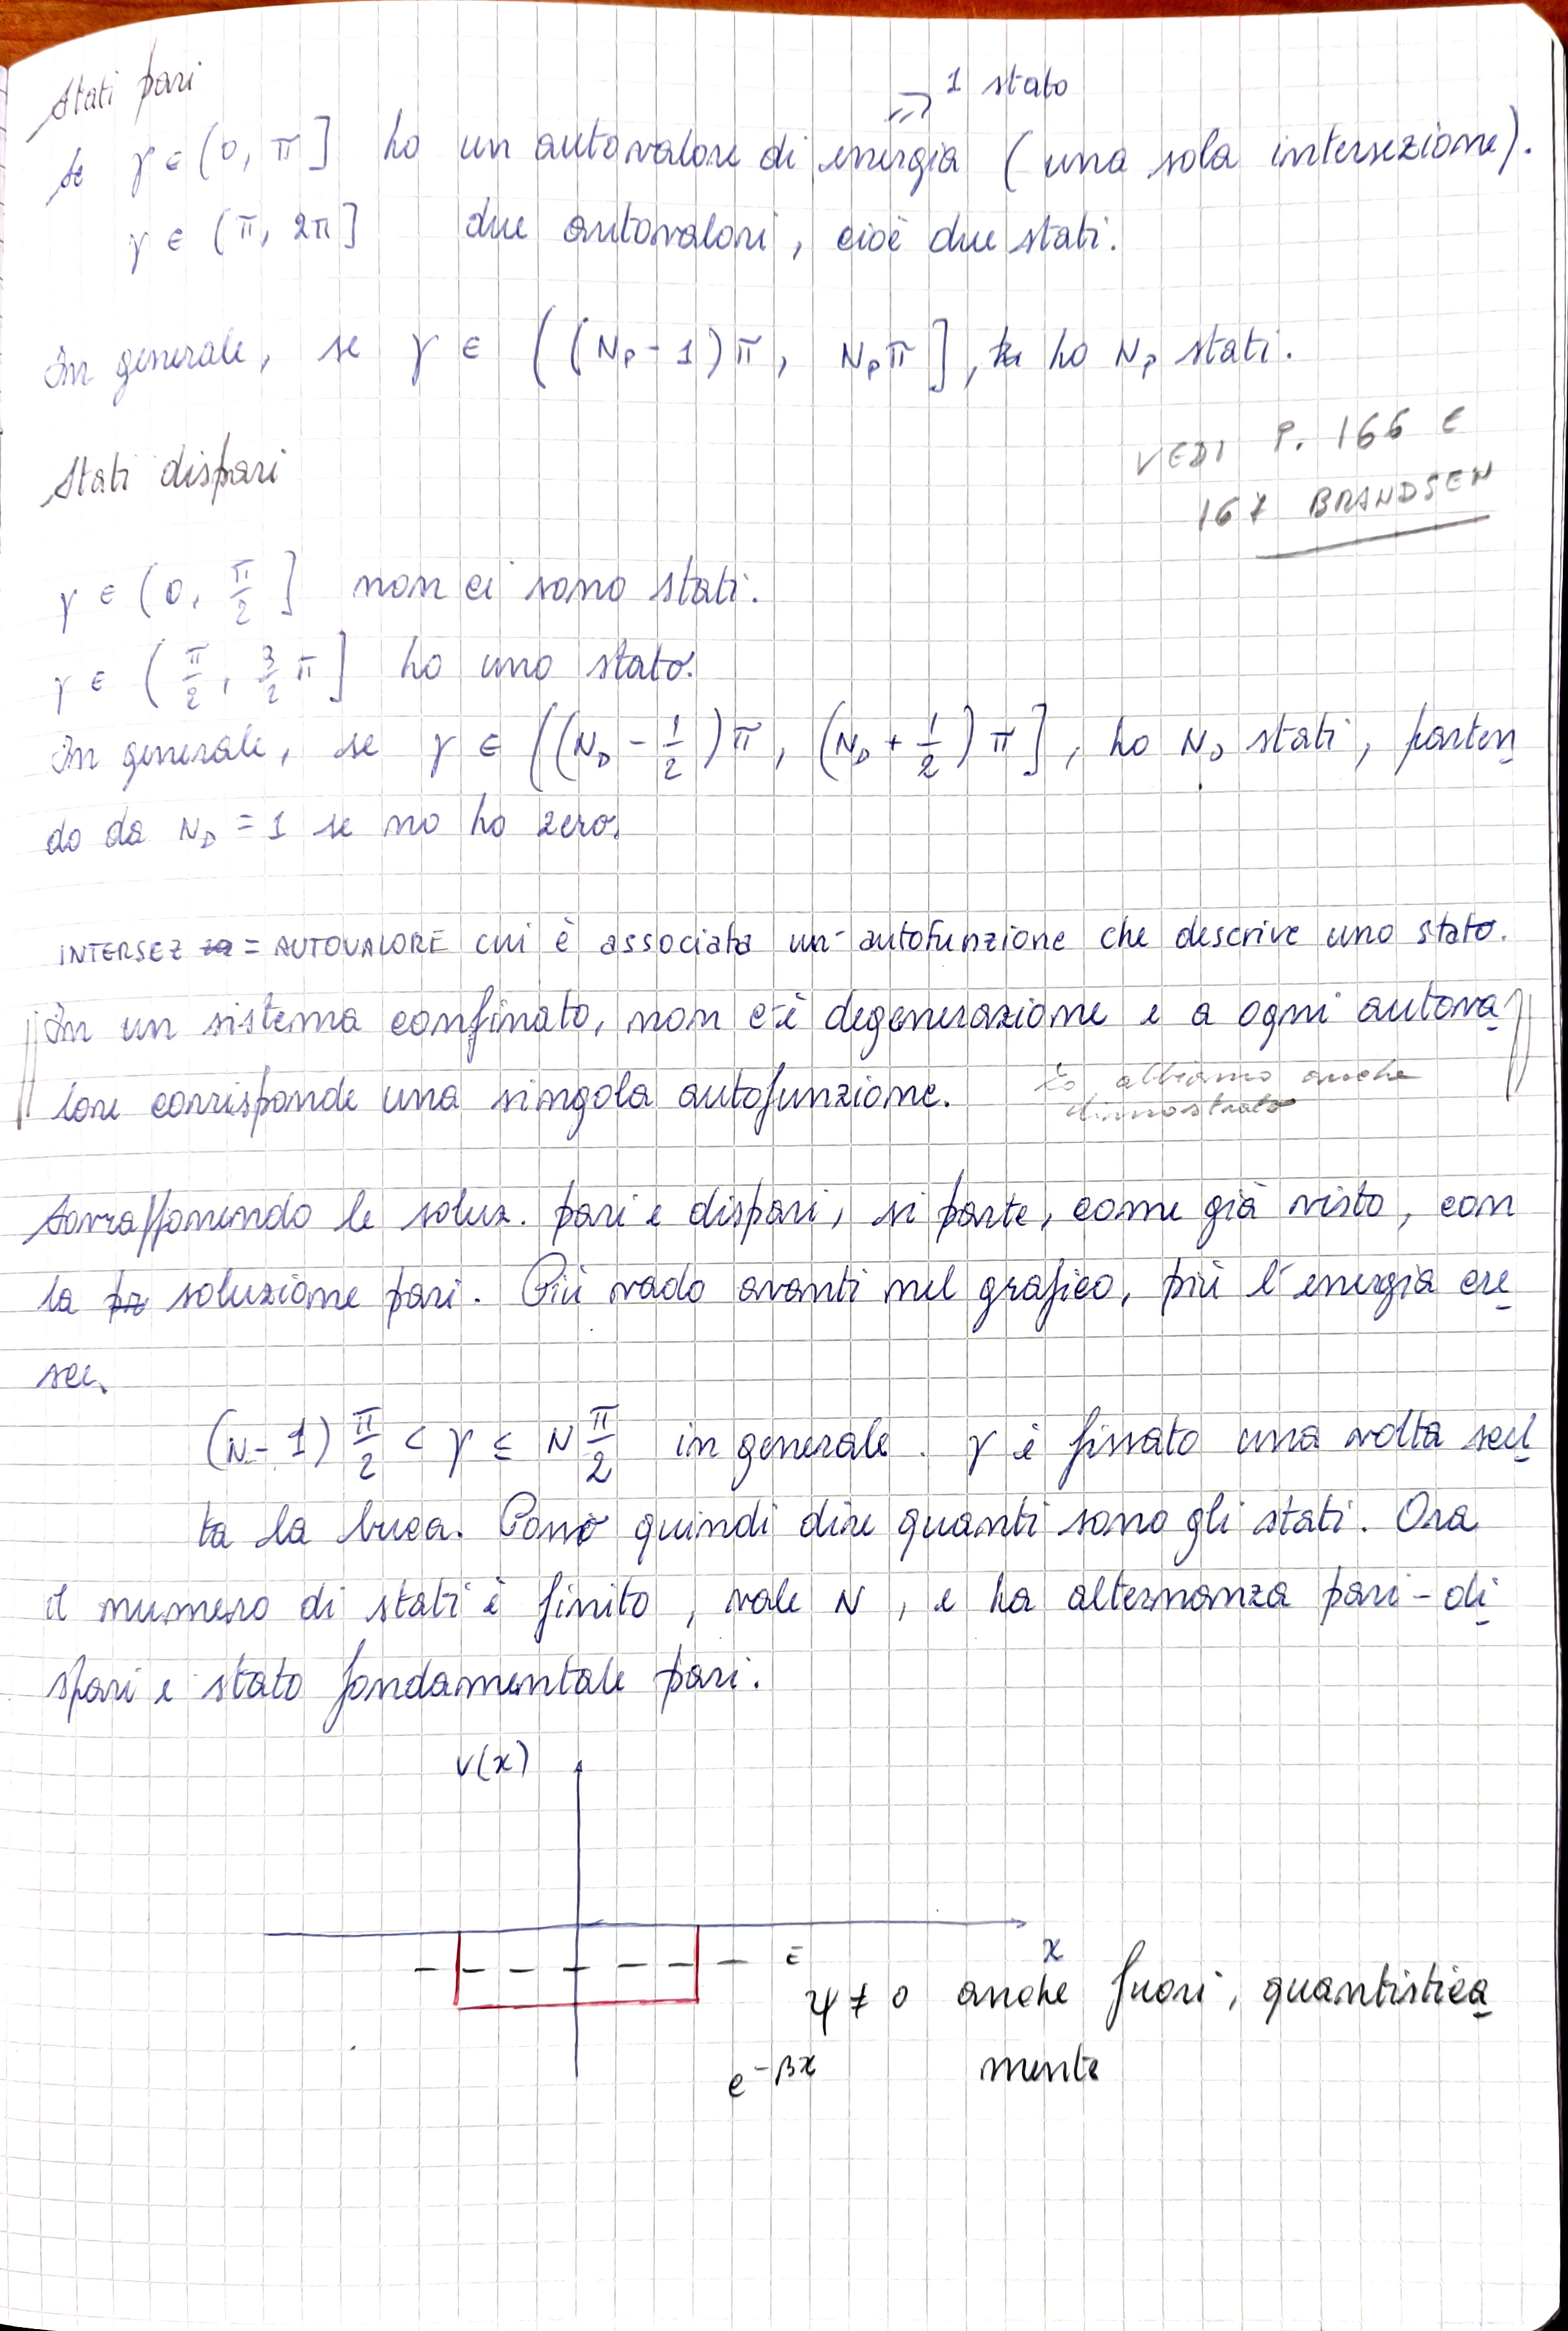 Stati pari
⇒ 1 stato
Se γ ∈ (0, π] ho un autovalore di energia (una sola intersezione).
γ ∈ (π, 2π] due autovalori, cioè due stati.
In generale, se γ ∈ ((N_P - 1)π, N_P π], ho N_P stati.
VEDI P. 166 E
167 BRANDSEN
Stati dispari
γ ∈ (0, π/2] non ci sono stati.
γ ∈ (π/2, 3/2 π] ho uno stato.
In generale, se γ ∈ ((N_D - 1/2)π, (N_D + 1/2)π], ho N_D stati, parten
do da N_D = 1 se no ho zero.
INTERSEZ = AUTOVALORE cui è associata un'autofunzione che descrive uno stato.
In un sistema confinato, non c'è degenerazione e a ogni autova
lore corrisponde una singola autofunzione.
Lo abbiamo anche
dimostrato
Sovrapponendo le soluz. pari e dispari, si parte, come già visto, con
la soluzione pari. Più vado avanti nel grafico, più l'energia cre
sce.
(N - 1) π/2 < γ ≤ N π/2 in generale. γ è fissato una volta scel
ta la buca. Posso quindi dire quanti sono gli stati. Ora
il numero di stati è finito, vale N, e ha alternanza pari-di
spari e stato fondamentale pari.
V(x)
E
x
ψ ≠ 0 anche fuori, quantistica
mente
e^{-βx}